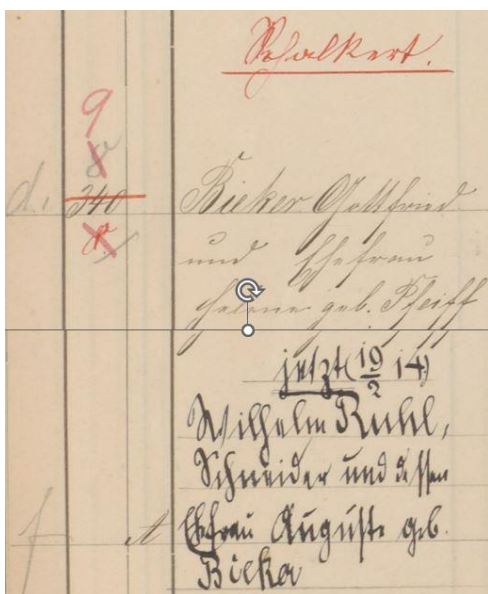 Schalkert.
9
8
d. 340 Bieker Gottfried
8.
und Ehefrau
Helene geb. Pfeiff
jetzt (19/2 14)
Wilhelm Ruhl,
Schneider und dessen
f A Ehefrau Auguste geb.
Bieker